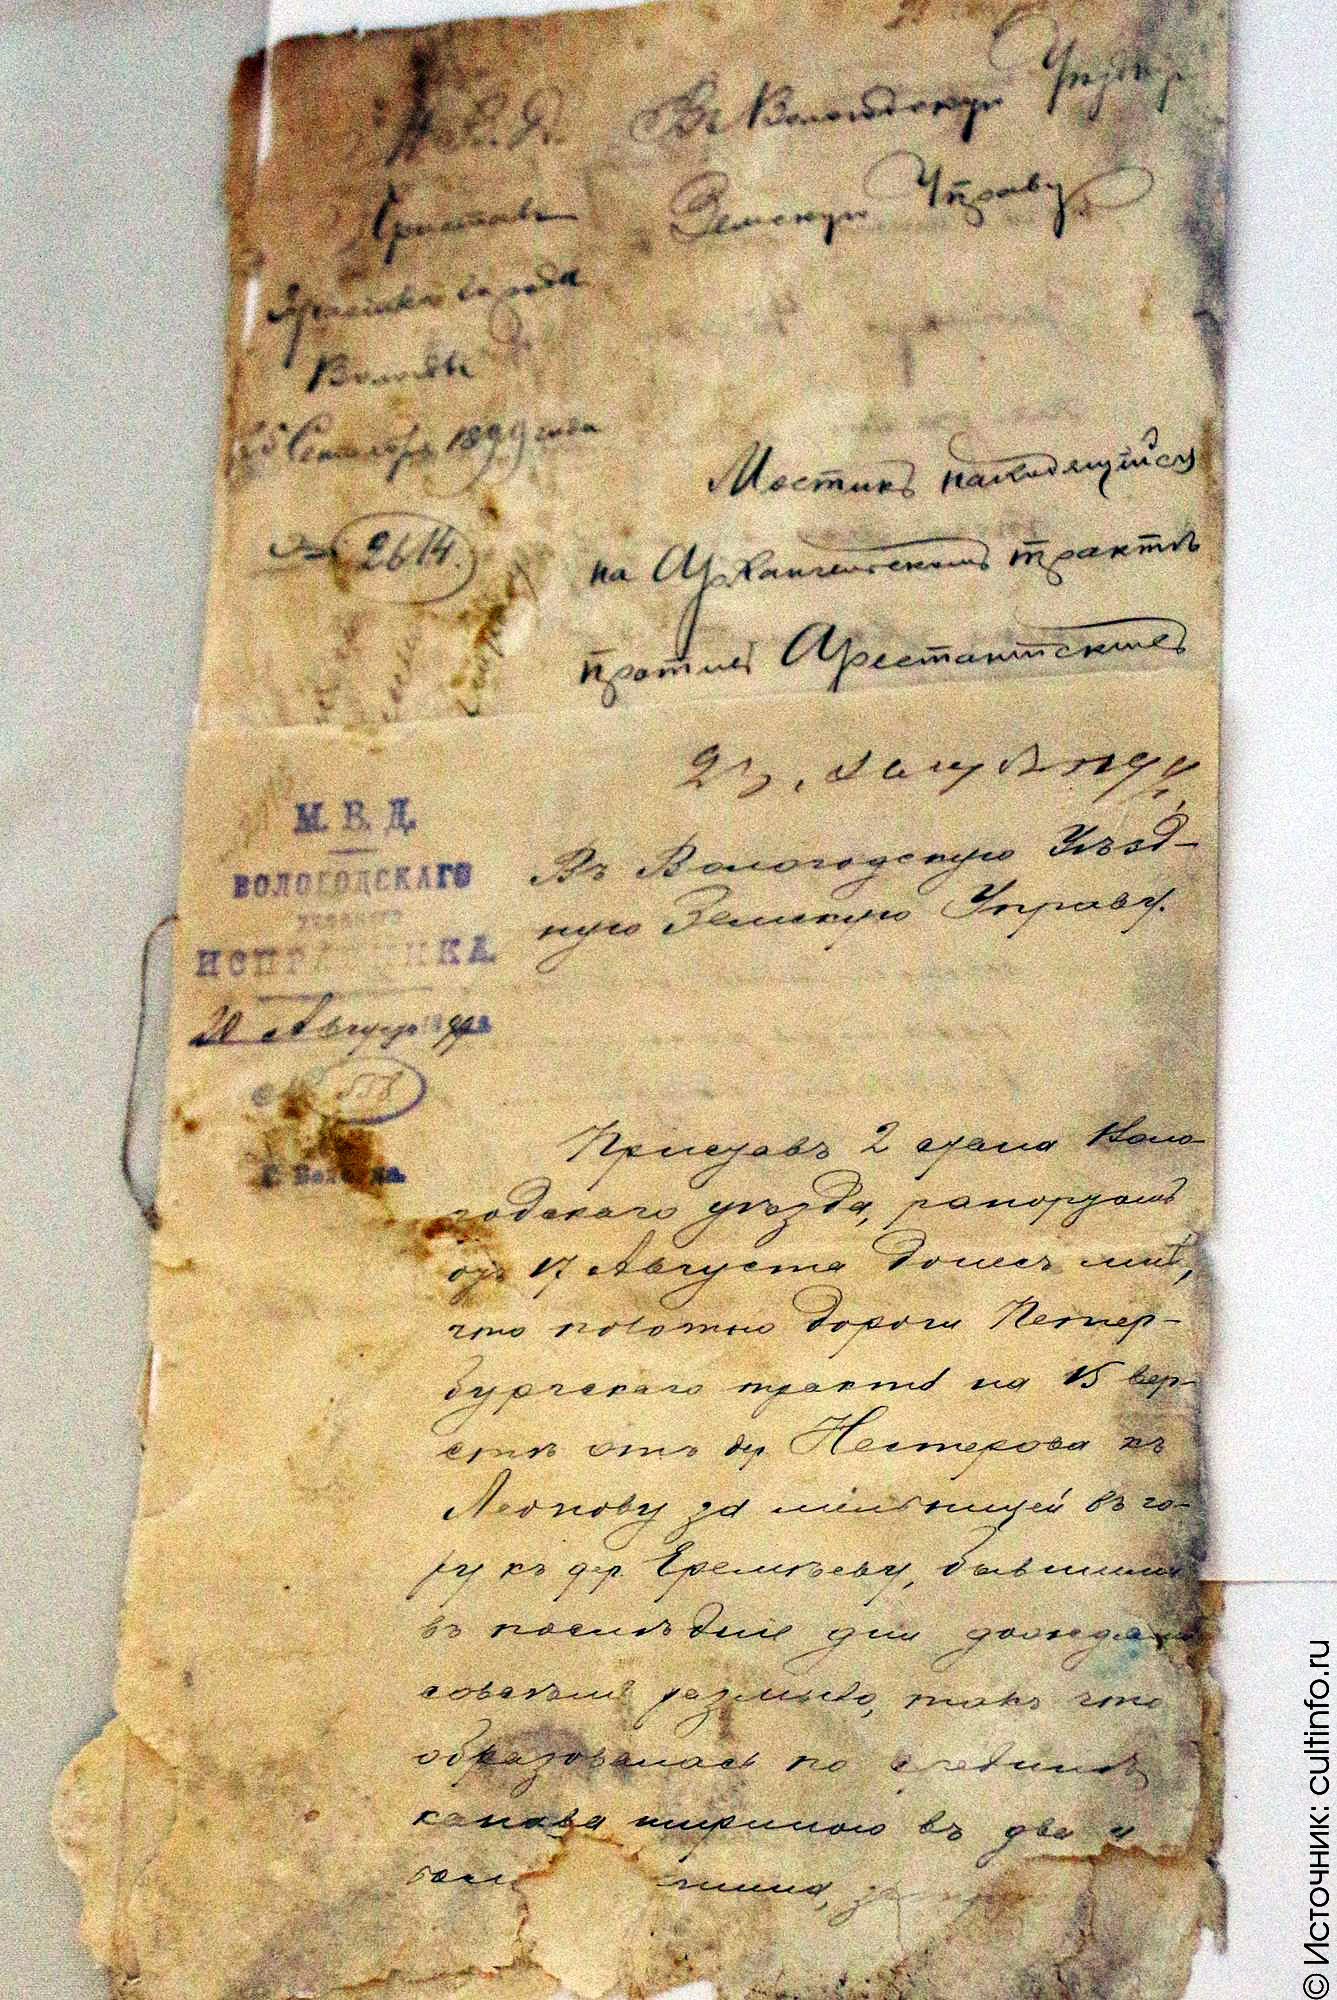 М. В. Д.
Въ Вологодскую Уездную
Приставъ
Земскую Управу.
города
Вологды
Сентября 1899 года
№ 2614.
Мостикъ находящийся
на Архангельскомъ трактѣ
противъ Арестантскихъ
М. В. Д.
ВОЛОГОДСКАГО
УѢЗДНАГО
ИСПРАВНИКА.
20 Августа 1899 года
№ 558
г. Вологда.
Въ Вологодскую Уѣзд-
ную Земскую Управу.
Приставъ 2 стана Воло-
годскаго уѣзда, рапортомъ
отъ 17 Августа донесъ мнѣ,
что полотно дороги Петер-
бургскаго тракта на 15 вер-
стѣ отъ дер. Нестерова къ
Леонову за мельницей въ го-
ру къ дер. Еремѣеву, бывшими
въ послѣднiе дни дождями
совсѣмъ размыто, такъ что
образовалась по срединѣ
канава шириною въ два и
болѣе
© Источник: cultinfo.ru